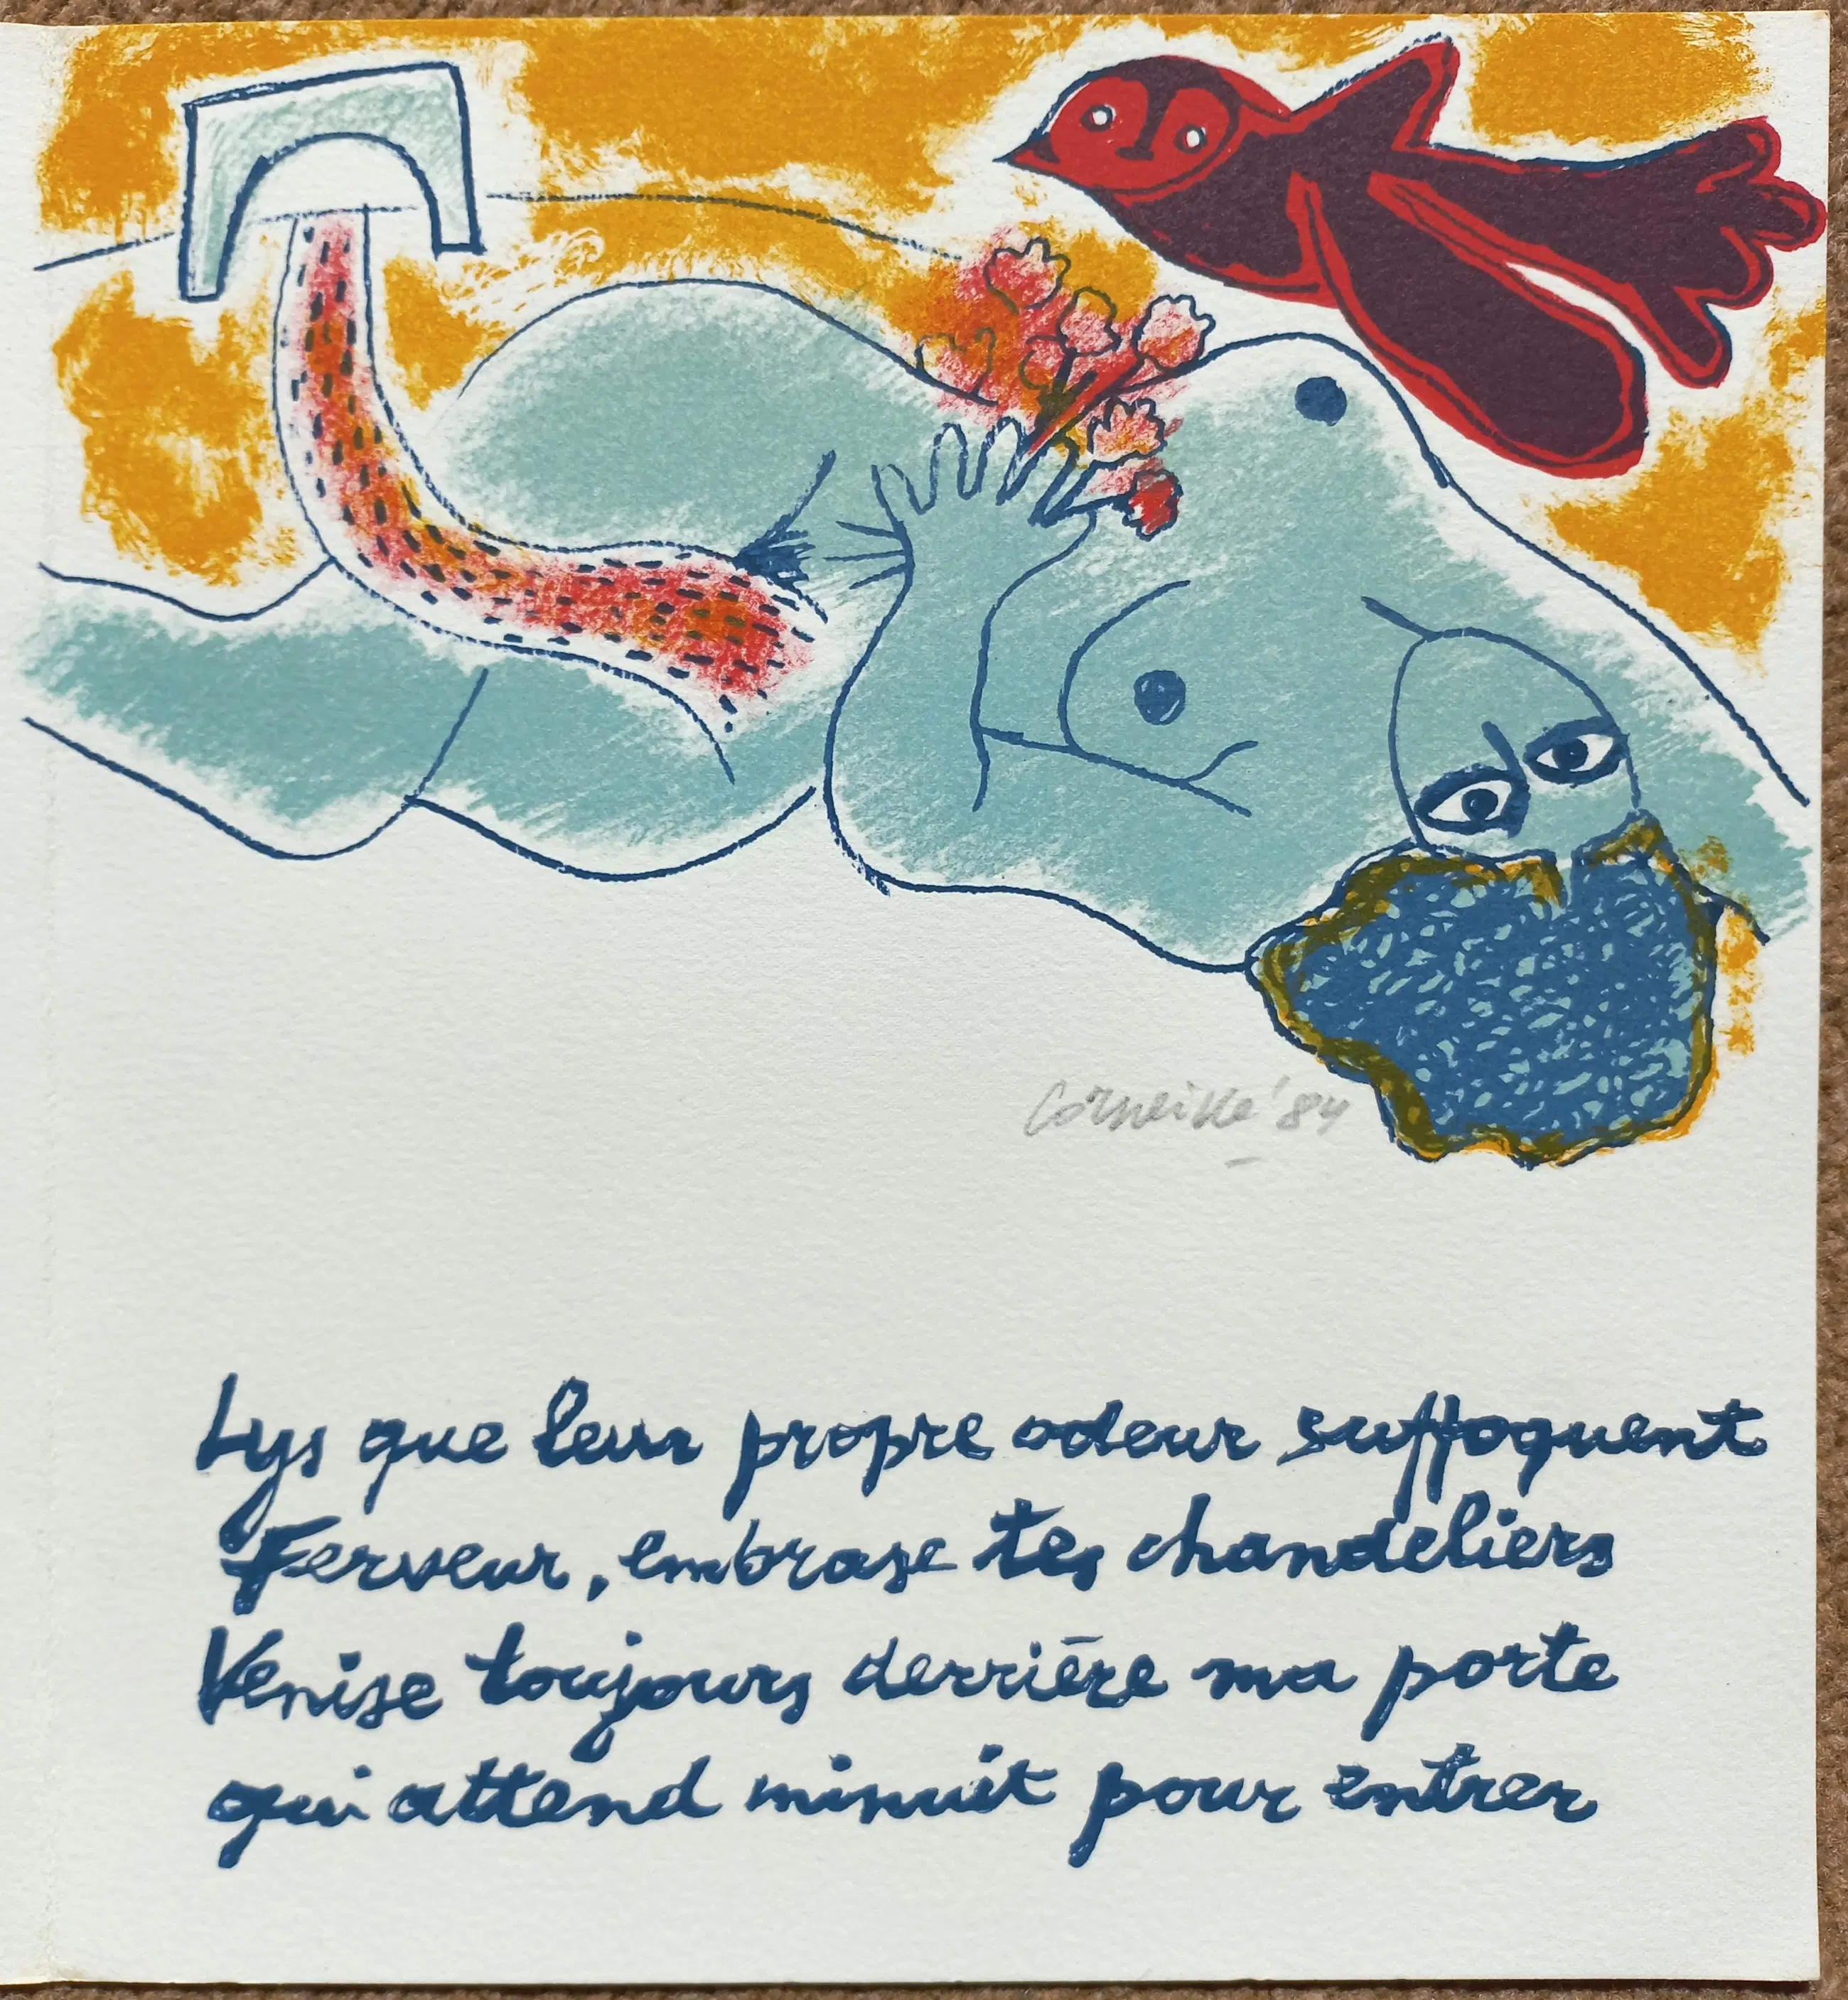 Corneille '84
Lys que leur propre odeur suffoquent
Ferveur, embrase tes chandeliers
Venise toujours derrière ma porte
qui attend minuit pour entrer